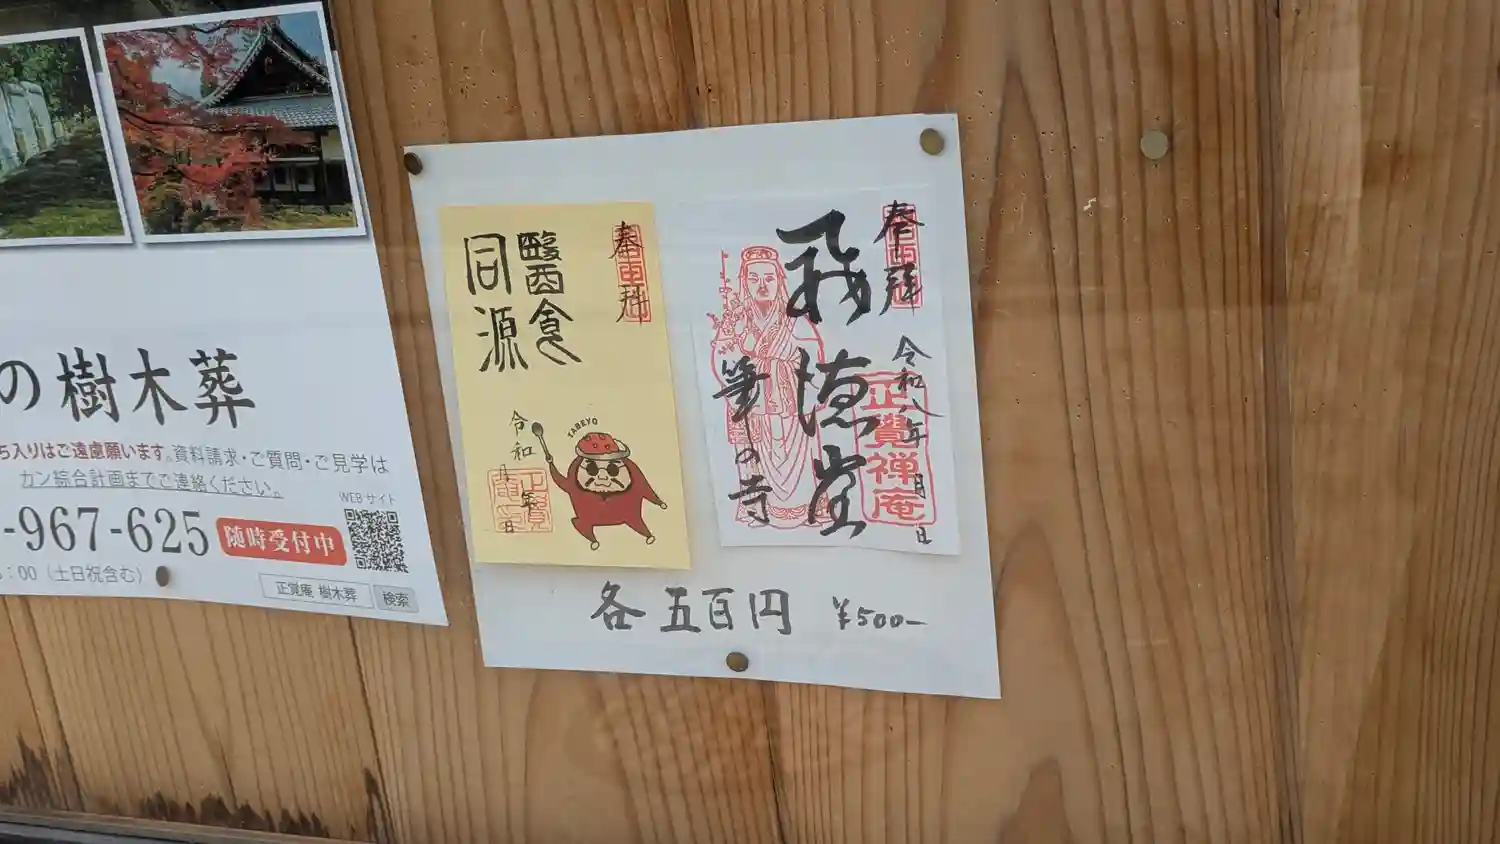 の樹木葬
ち入りはご遠慮願います。資料請求・ご質問・ご見学は
カン綜合計画までご連絡ください。
-967-625
随時受付中
WEBサイト
:00(土日祝含む)
正覚庵 樹木葬
検索
奉拝
醫食
同源
令和
年
月
日
TABEYO
奉拝
令和八年
月
日
筆の寺
正覺禅庵
各五百円
¥500-